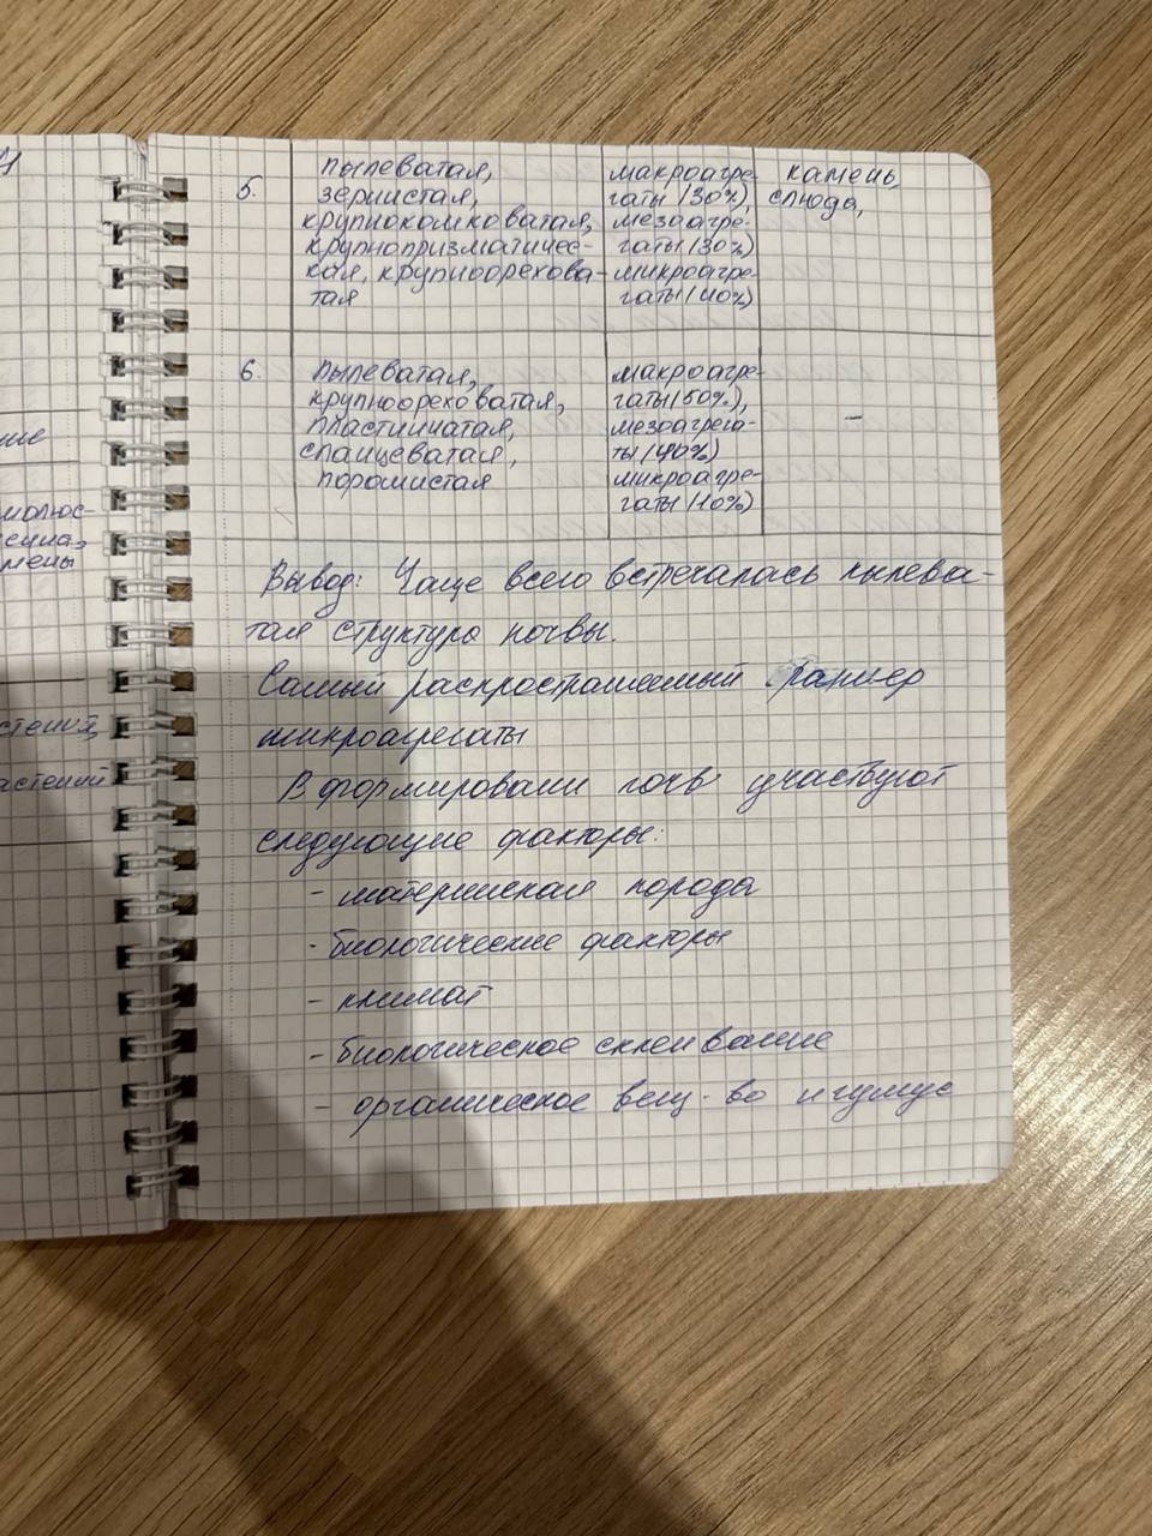 5.
пылеватая,
зернистая,
крупнокомковатая,
крупнопризматичес-
кая, крупноорехова-
тая
макроагре-
гаты (30%),
мезоагре-
гаты (30%)
микроагре-
гаты (40%)
камень,
слюда,
6.
пылеватая,
крупноореховатая,
пластинчатая,
сланцеватая,
поромистая
макроагре-
гаты (50%),
мезоагрега-
ты (40%)
микроагре-
гаты (10%)
-
Вывод: Чаще всего встречалась пылева-
тая структура почвы.
Самый распространненый размер
микроагрегаты
В формировани почв участвуют
следующие факторы:
- материнская порода
- биологические факторы
- климат
- биологическое склеивание
- органическое вещ-во и гумус
ние
молюс-
мены
стений,
астений